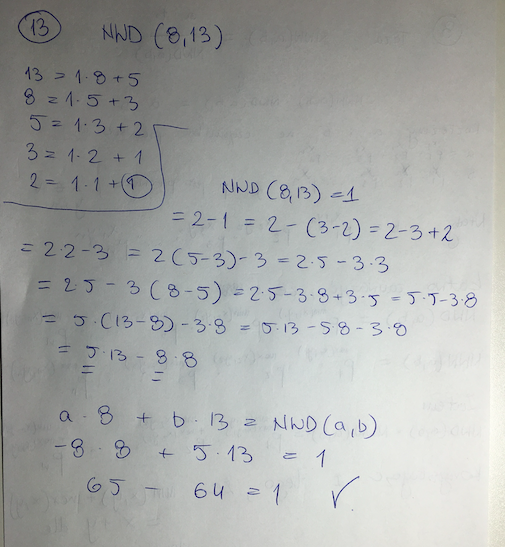 13 NWD (8,13)
13 = 1·8+5
8 = 1·5+3
5 = 1·3+2
3 = 1·2+1
2 = 1·1+1
NWD (8,13) = 1
= 2-1 = 2-(3-2) = 2-3+2
= 2·2-3 = 2(5-3)-3 = 2·5-3·3
= 2·5 - 3(8-5) = 2·5-3·8+3·5 = 5·5-3·8
= 5·(13-8)-3·8 = 5·13-5·8-3·8
= 5·13 - 8·8
a·8 + b·13 = NWD(a,b)
-8·8 + 5·13 = 1
65 - 64 = 1 ✓